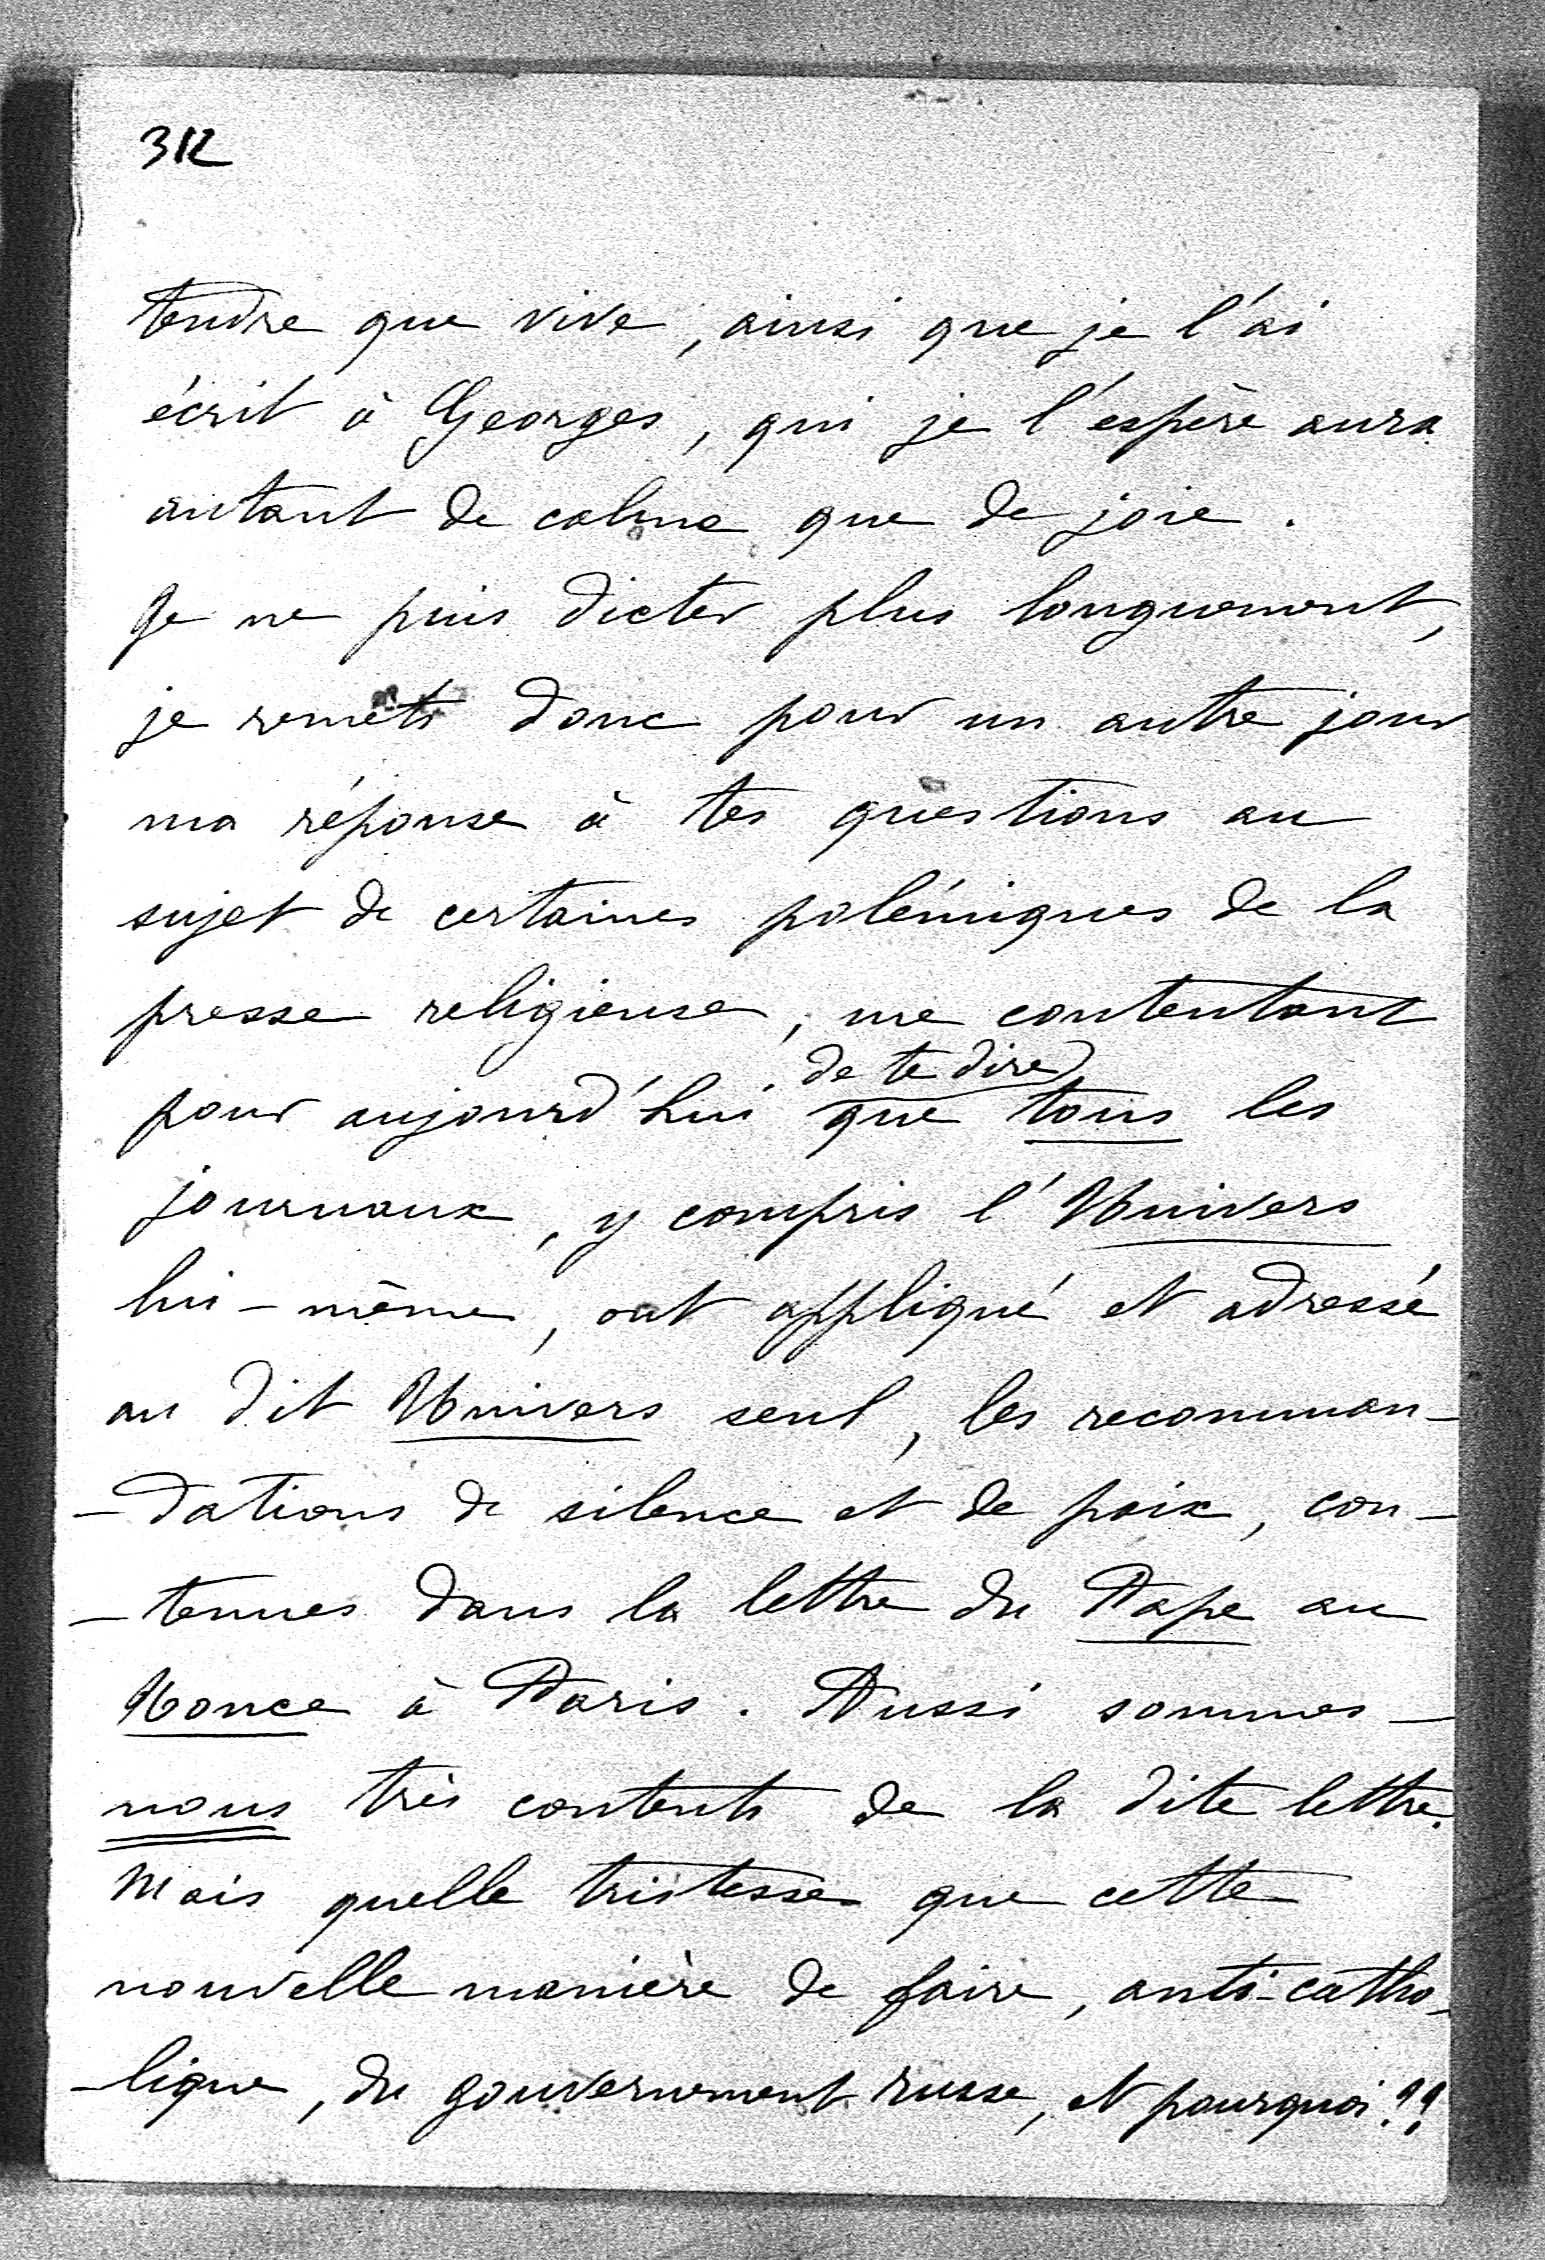 312
tendre que vive, ainsi que je l'ai
écrit à Georges, qui je l'espère aura
autant de calme que de joie.
Je ne puis dicter plus longuement,
je remets donc pour un autre jour
ma réponse à tes questions au
sujet de certaines polémiques de la
presse religieuse, me contentant
de te dire
pour aujourd'hui que tous les
journaux, y compris l'Univers
lui-même, ont appliqué et adressé
au dit Univers seul, les recomman-
-dations de silence et de paix, con-
-tenues dans la lettre du Pape au
Nonce à Paris. Aussi sommes-
nous très contents de la dite lettre.
Mais quelle tristesse que cette
nouvelle manière de faire, anti-catho-
-lique, du gouvernement russe, et pourquoi??